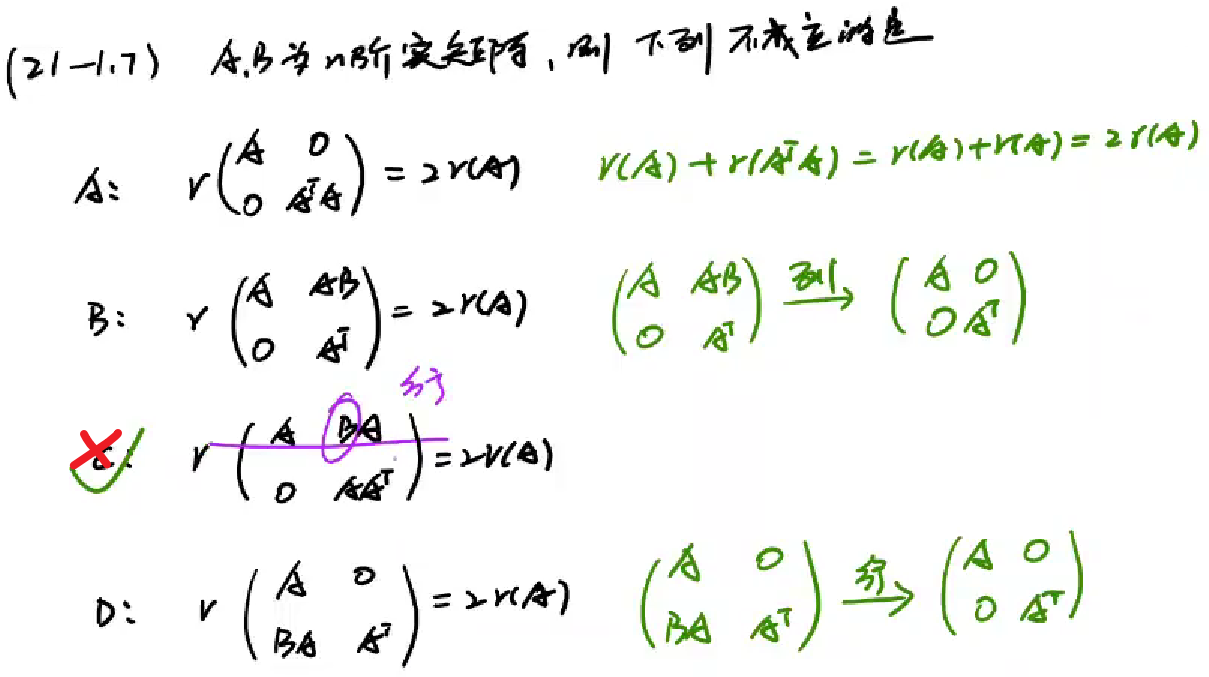 (21-1.7) A.B为n阶实矩阵,则 下列不成立的是
A: r(A 0 0 AᵀA) = 2r(A) r(A)+r(AᵀA) = r(A)+r(A) = 2r(A)
B: r(A AB 0 Aᵀ) = 2r(A) (A AB 0 Aᵀ) 列→ (A 0 0 Aᵀ)
行
C: r(A BA 0 AAᵀ) = 2r(A)
D: r(A 0 BA Aᵀ) = 2r(A) (A 0 BA Aᵀ) 行→ (A 0 0 Aᵀ)